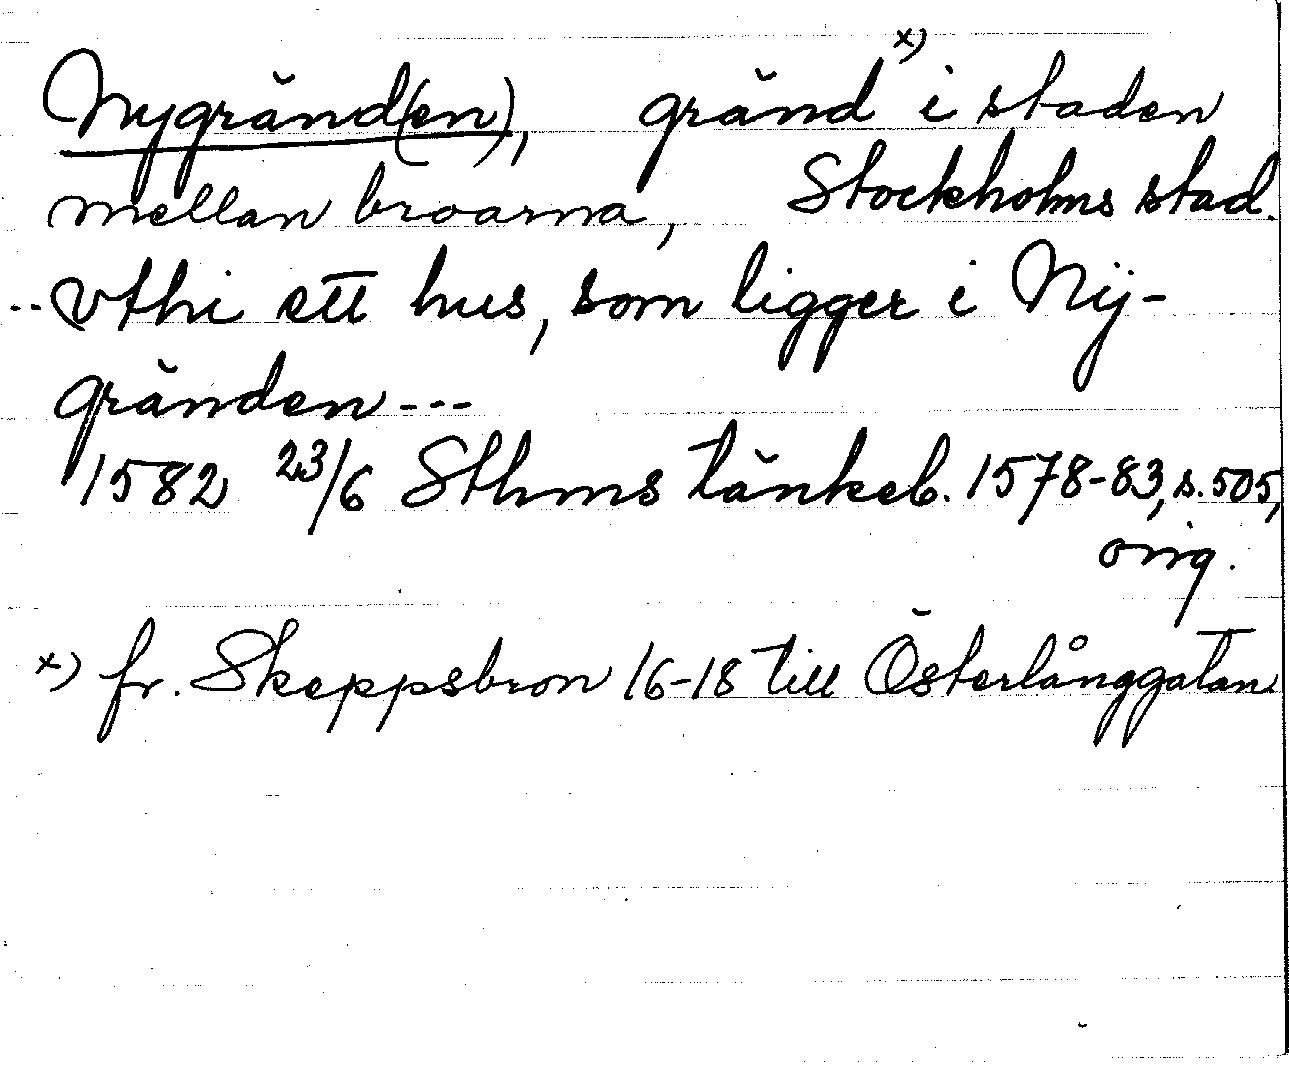 Nygränd(en), gränd x) i staden
mellan broarna, Stockholms stad.
.. vthi ett hus, som ligger i Nij-
gränden ---
1582 23/6 Sthms tänkeb. 1578-83, s. 505,
orig.
x) fr. Skeppsbron 16-18 till Österlånggatan